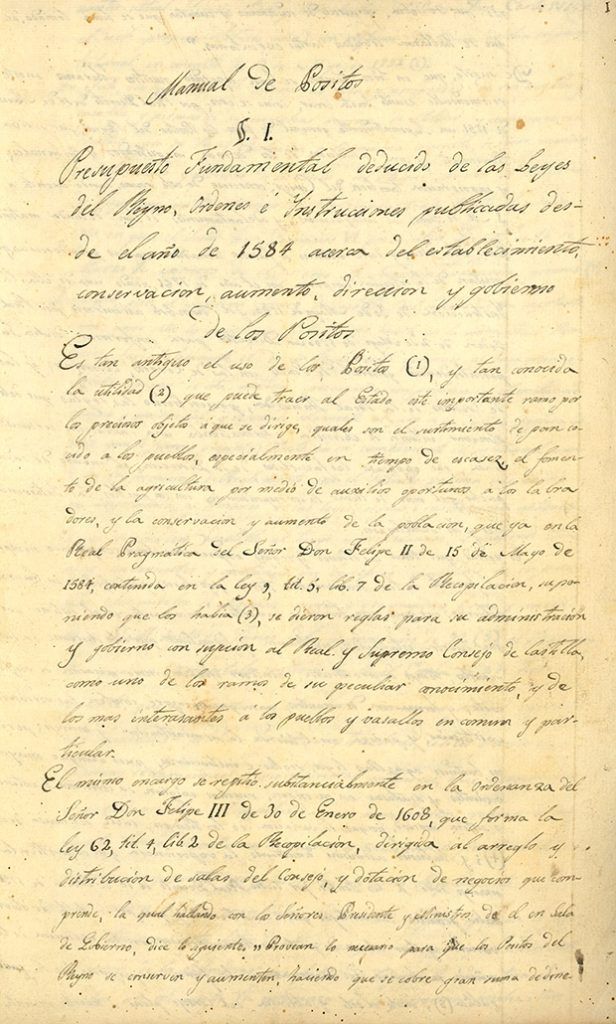 1
Manual de Positos
§. I.
Presupuesto Fundamental deducido de las Leyes
del Reyno, Ordenes é Instrucciones publicadas des-
de el año de 1584 acerca del establecimiento,
conservacion, aumento, direccion y gobierno
de los Positos
Es tan antiguo el uso de los Positos (1), y tan conocida
la utilidad (2) que puede traer al Estado este importante ramo por
los precisos objetos á que se dirige, quales son el surtimiento de pan co-
cido á los pueblos, especialmente en tiempo de escasez, el fomen-
to de la agricultura por medio de auxilios oportunos á los labra
dores, y la conservacion y aumento de la poblacion, que ya en la
Real Pragmática del Señor Don Felipe II de 15 de Mayo de
1584, contenida en la ley 9, tit. 5, lib. 7 de la Recopilacion, supo-
niendo que los habia (3), se dieron reglas para su administración
y gobierno con sujecion al Real y Supremo Consejo de Castilla,
como uno de los ramos de su peculiar conocimiento, y de
los mas interasantes á los pueblos y vasallos en comun y par-
ticular.
El mismo encargo se repitio substancialmente en la Ordenanza del
Señor Don Felipe III de 30 de Enero de 1608, que forma la
ley 62, tit. 4, lib. 2 de la Recopilacion, dirigida al arreglo y
distribucion de salas del Consejo, y dotacion de negocios que com-
prende: la qual hablando con los Señores Presidente y Ministros de él en Sala
de Gobierno, dice lo siguiente. "Provean lo necesario para que los Positos del
Reyno se conserven y aumenten, haciendo que se cobre gran suma de dine-